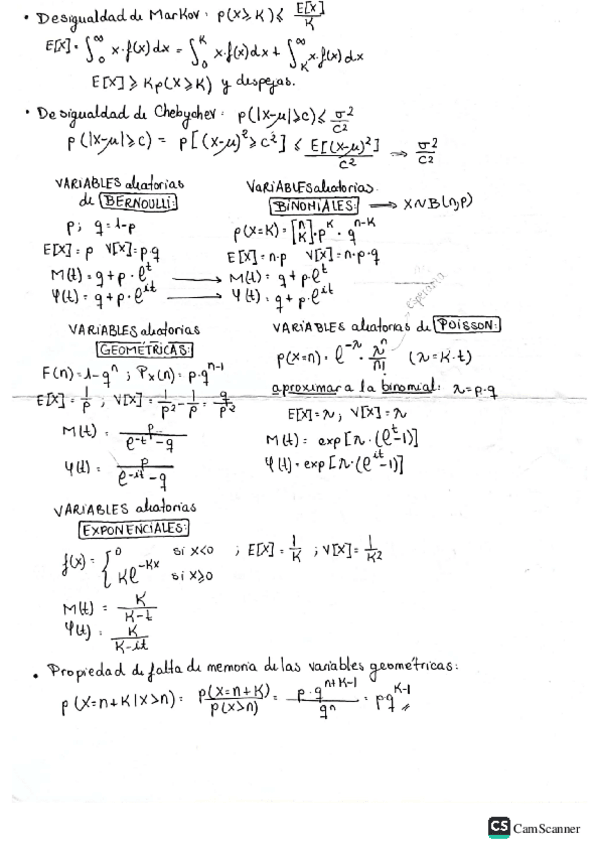 • Desigualdad de Markov: p(X≥K) ≤ E[X]/K
E[X] = ∫₀^∞ x·f(x)dx = ∫₀^K x·f(x)dx + ∫_K^∞ x·f(x)dx
E[X] ≥ Kp(X≥K) y despejas.
• Desigualdad de Chebychev: p(|X-μ|≥c) ≤ σ²/c²
p(|X-μ|≥c) = p[(X-μ)²≥c²] ≤ E[(X-μ)²]/c² → σ²/c²
VARIABLES aleatorias
de BERNOULLI:
p; q=1-p
E[X]=p V[X]=p·q
M(t)=q+p·e^t
φ(t)=q+p·e^it
VARIABLES aleatorias
BINOMIALES: → X~B(n,p)
p(X=K)=[n K]·p^K·q^n-K
E[X]=n·p V[X]=n·p·q
M(t)=q+p·e^t
φ(t)=q+p·e^it
VARIABLES aleatorias
GEOMÉTRICAS:
F(n)=1-q^n; P_X(n)=p·q^n-1
E[X]=1/p; V[X]=1/p² - 1/p = q/p²
M(t)= p/(e^-t - q)
φ(t)= p/(e^-it - q)
VARIABLES aleatorias de POISSON:
p(X=n)=e^-λ·λ^n/n! (λ=K·t)
aproximar a la binomial: λ=p·q
E[X]=λ; V[X]=λ
M(t)= exp[λ·(e^t-1)]
φ(t)=exp[λ·(e^it-1)]
VARIABLES aleatorias
EXPONENCIALES:
f(x)= { 0 si X<0 ; E[X]=1/K ; V[X]=1/K²
Ke^-Kx si X≥0
M(t) = K/(K-t)
φ(t) = K/(K-it)
• Propiedad de falta de memoria de las variables geométricas:
p(X=n+K|X>n) = p(X=n+K)/p(X>n) = p·q^n+K-1/q^n = pq^K-1
CS CamScanner